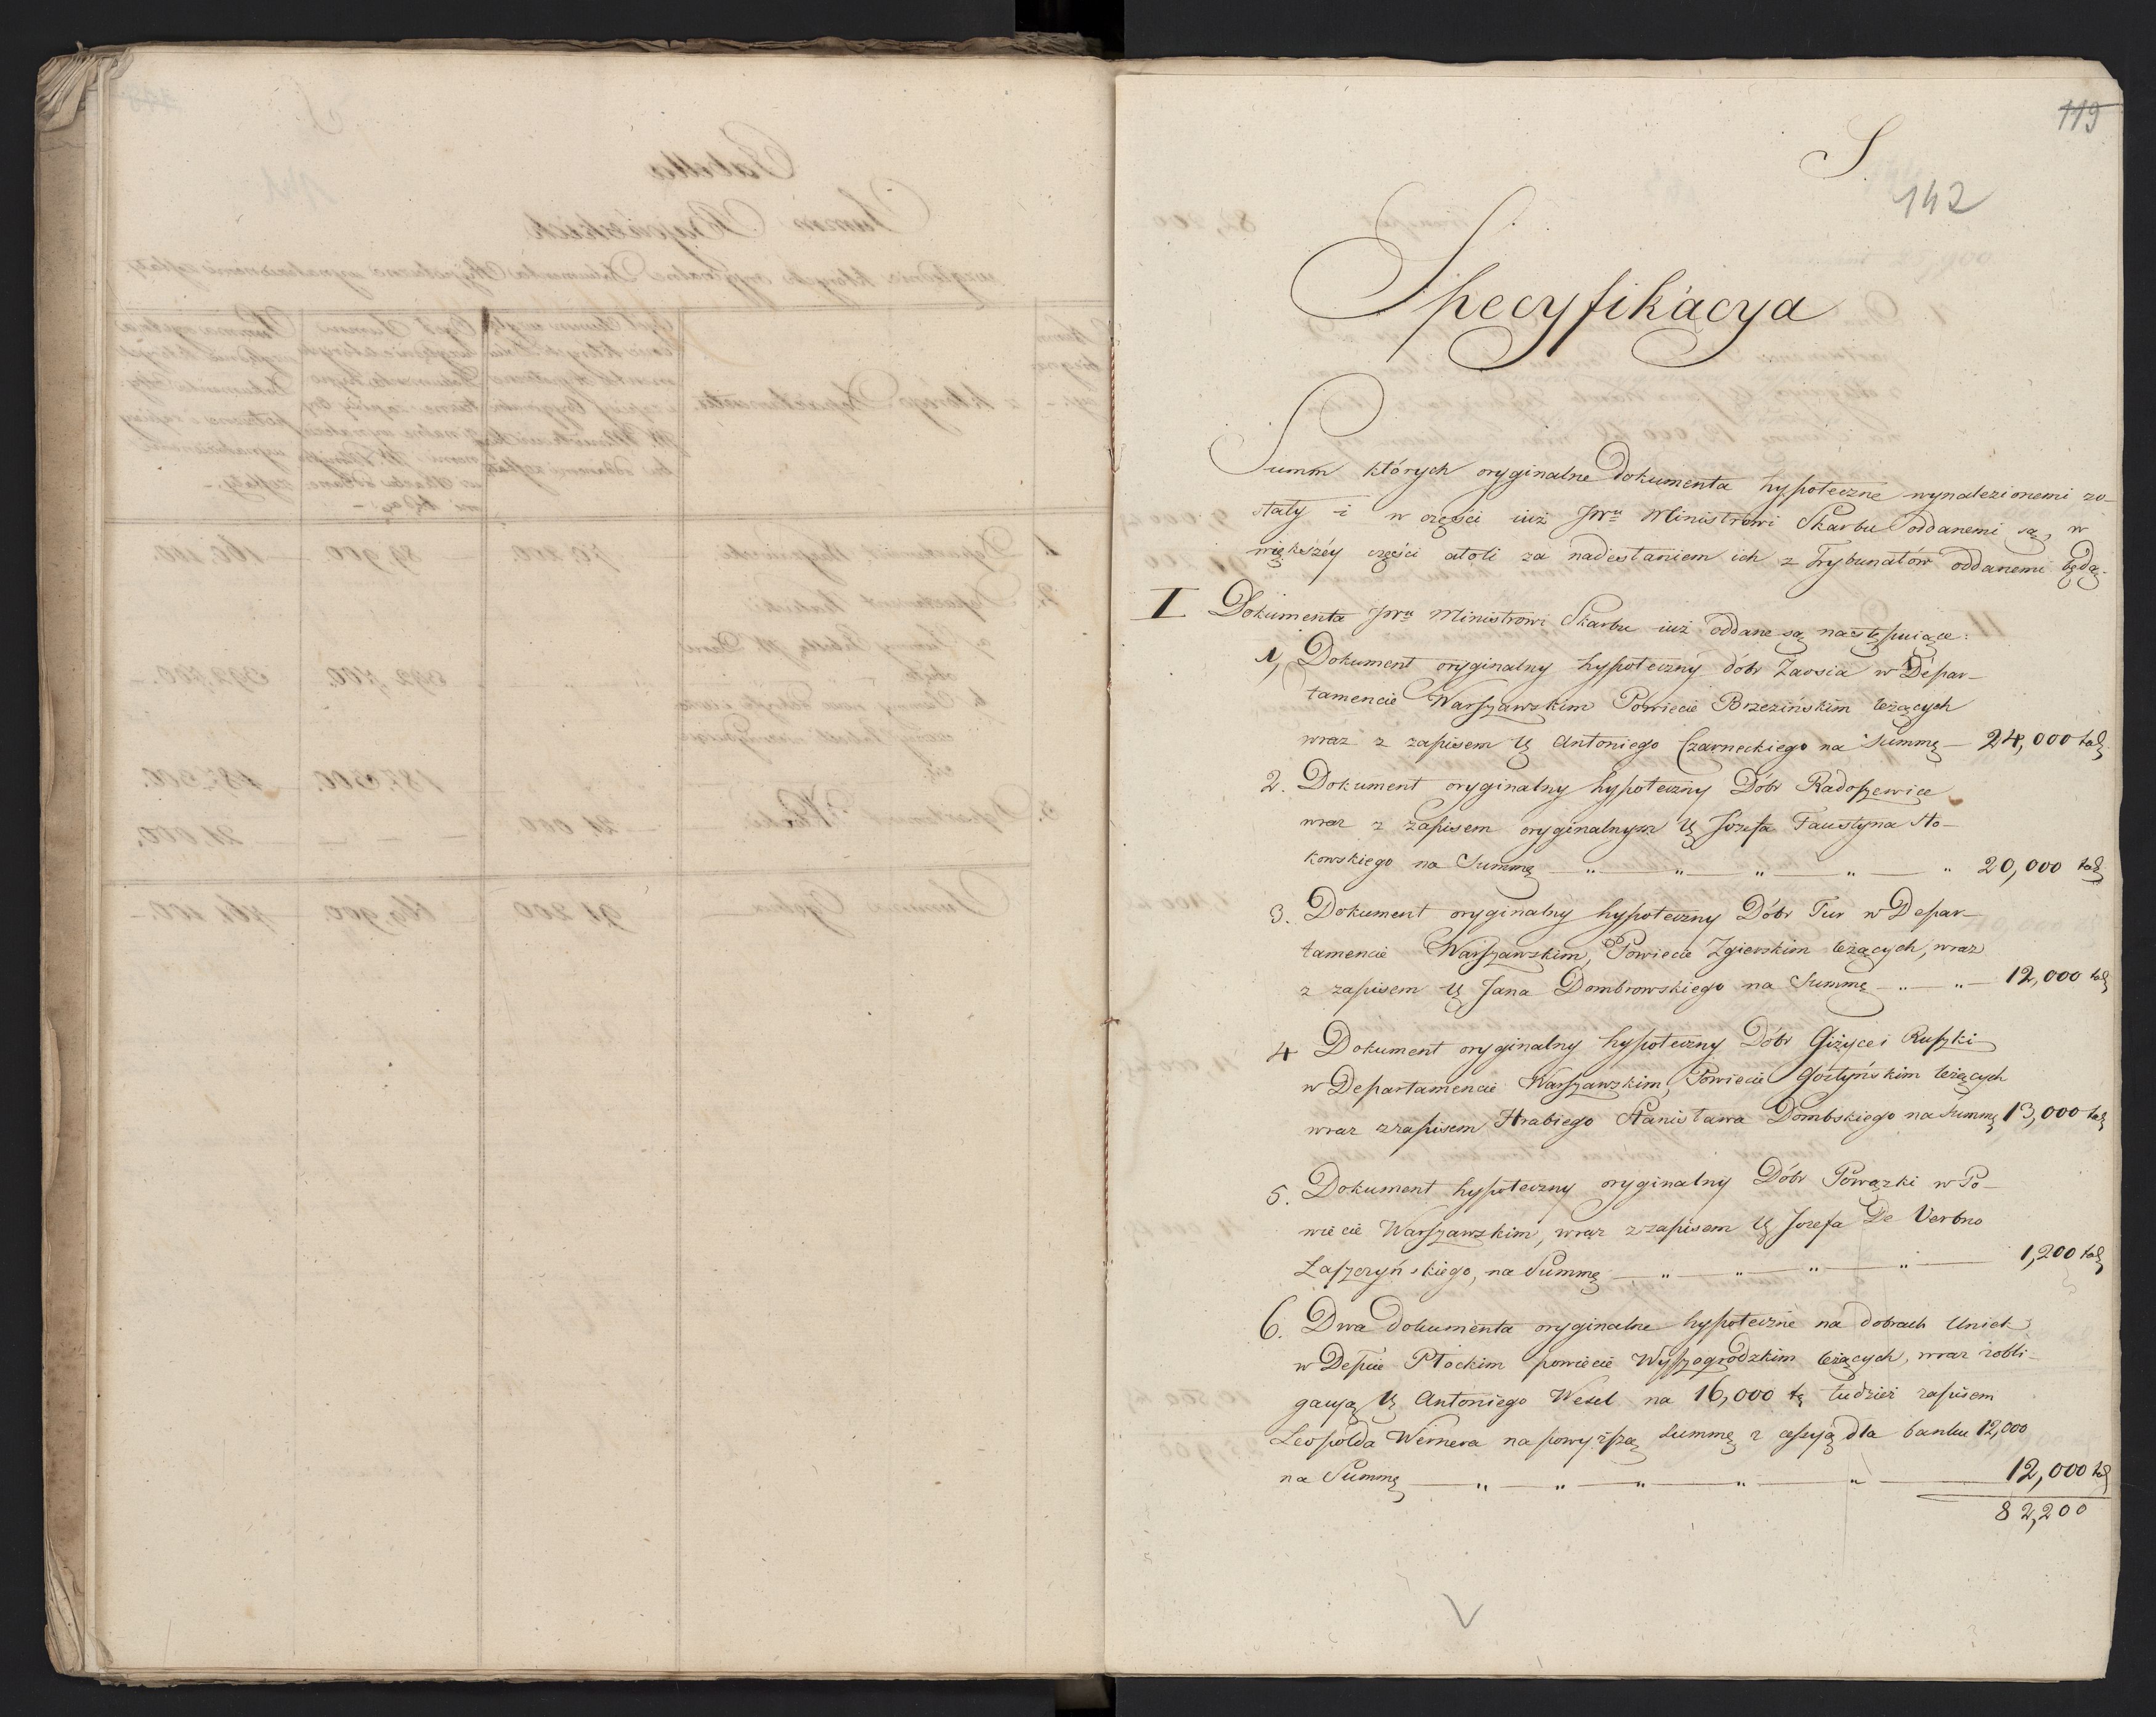 119
S.
142
Specyfikacya
Summ których oryginalne Dokumenta hypoteczne wynalezionemi zo-
stały i w części iuż JWu Ministrowi Skarbu oddanemi są, w
większéy części atoli za nadesłaniem ich z Trybunałów oddanemi będą.
I Dokumenta JWu Ministrowi Skarbu iuż oddane są następuiące:
1, Dokument oryginalny hypoteczny dóbr Zaosia w Depar-
tamencie Warszawskim Powiecie Brzezińskim leżących
wraz z zapisem Ur Antoniego Czarneckiego na Summę — 24,000 tal
2. Dokument oryginalny hypoteczny Dóbr Radoszewice
wraz z zapisem oryginalnym Ur Jozefa Faustyna Sto-
kowskiego na Summę — " — " — " — " — " 20,000 tal
3. Dokument oryginalny hypoteczny Dóbr Tur w Depar-
tamencie Warszawskim, Powiecie Zgierskim leżących, wraz
z zapisem Ur Jana Dombrowskiego na Summę — " — " — 12,000 tal
4 Dokument oryginalny hypoteczny Dóbr Giżyce i Ruszki
w Departamencie Warszawskim, Powiecie Gostyńskim leżących
wraz z zapisem Hrabiego Stanisława Dombskiego na Summę 13,000 tal
5. Dokument hypoteczny oryginalny Dóbr Powązki w Po-
wiecie Warszawskim, wraz z zapisem Ur Jozefa De Verbno
Łaszczyńskiego, na Summę — " — " — " — " — 1,200 tal
6. Dwa dokumenta oryginalne hypoteczne na dobrach Unick
w Depcie Płockim powiecie Wyszogrodzkim leżących, wraz z obli-
gacyą Ur Antoniego Wesel na 16,000 tudzież zapisem
Leopolda Wernera na powyższą Summę z cessyą dla banku 12,000
na Summę — " — " — " — " — " — 12,000 tal
82,200